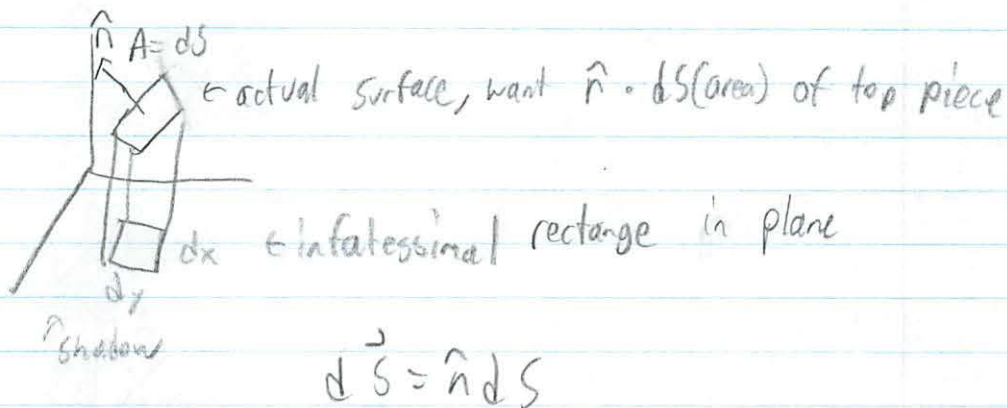 n̂ A = dS
← actual surface, want n̂ · dS(area) of top piece
dx ← infatessimal rectange in plane
dy
↑ shadow
dS⃗ = n̂ dS